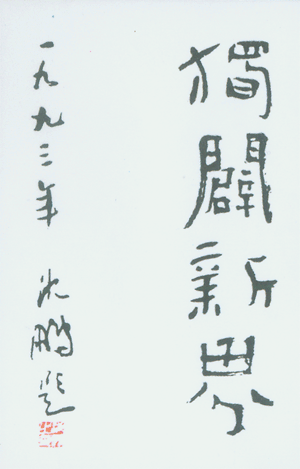 獨闢新界
一九九三年 沈鵬題